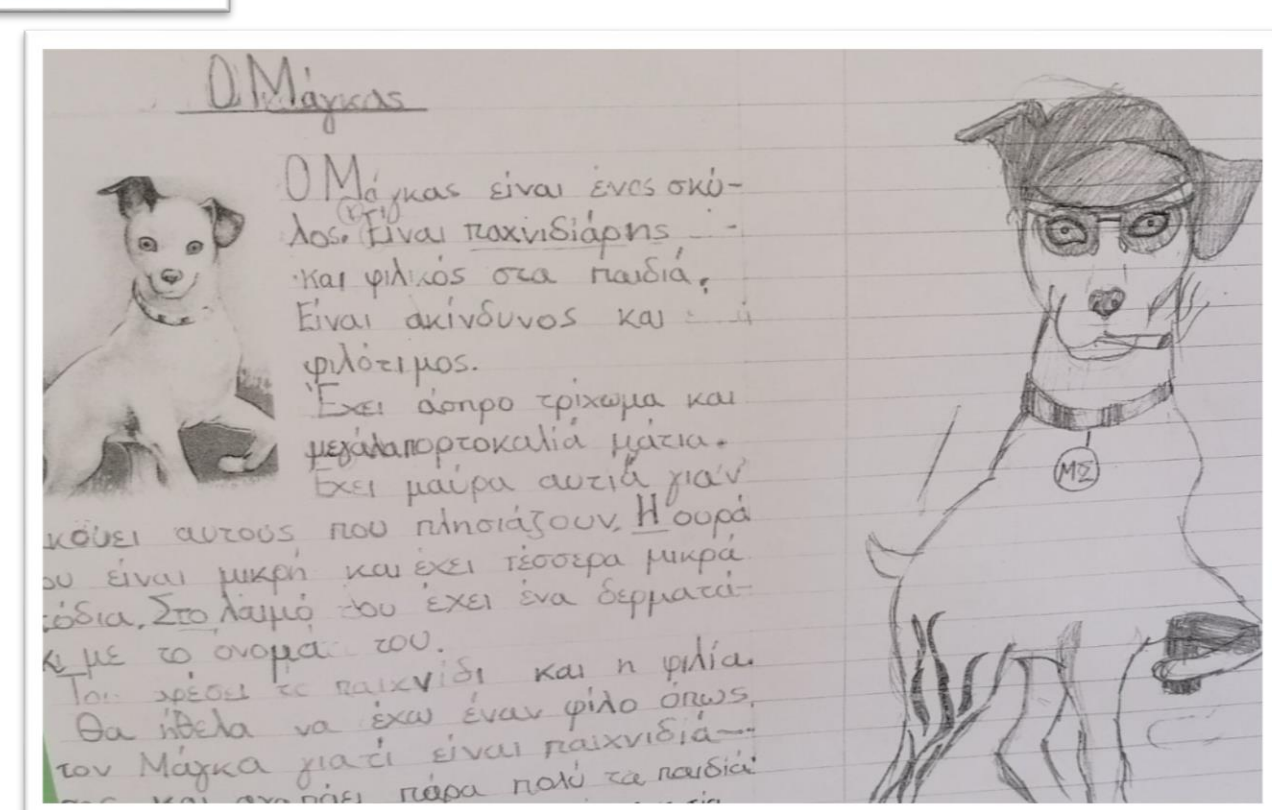 Ο Μάγκας
Ο Μάγκας είναι ένας σκύ-
λος. Είναι παχνιδιάρης
και φιλικός στα παιδιά.
Είναι ακίνδυνος και
φιλότιμος.
Έχει άσπρο τρίχωμα και
μεγάλα πορτοκαλιά μάτια.
Έχει μαύρα αυτιά για ν'
κούει αυτούς που πλησιάζουν. Η ουρά
ου είναι μικρή και έχει τέσσερα μικρά
όδια. Στο λαιμό του έχει ένα δερματά-
κι με το όνομά του.
Του αρέσει το παιχνίδι και η φιλία.
Θα ήθελα να έχω έναν φίλο όπως
τον Μάγκα γιατί είναι παιχνιδιά-
και αγαπάει πάρα πολύ τα παιδιά
ΜΣ